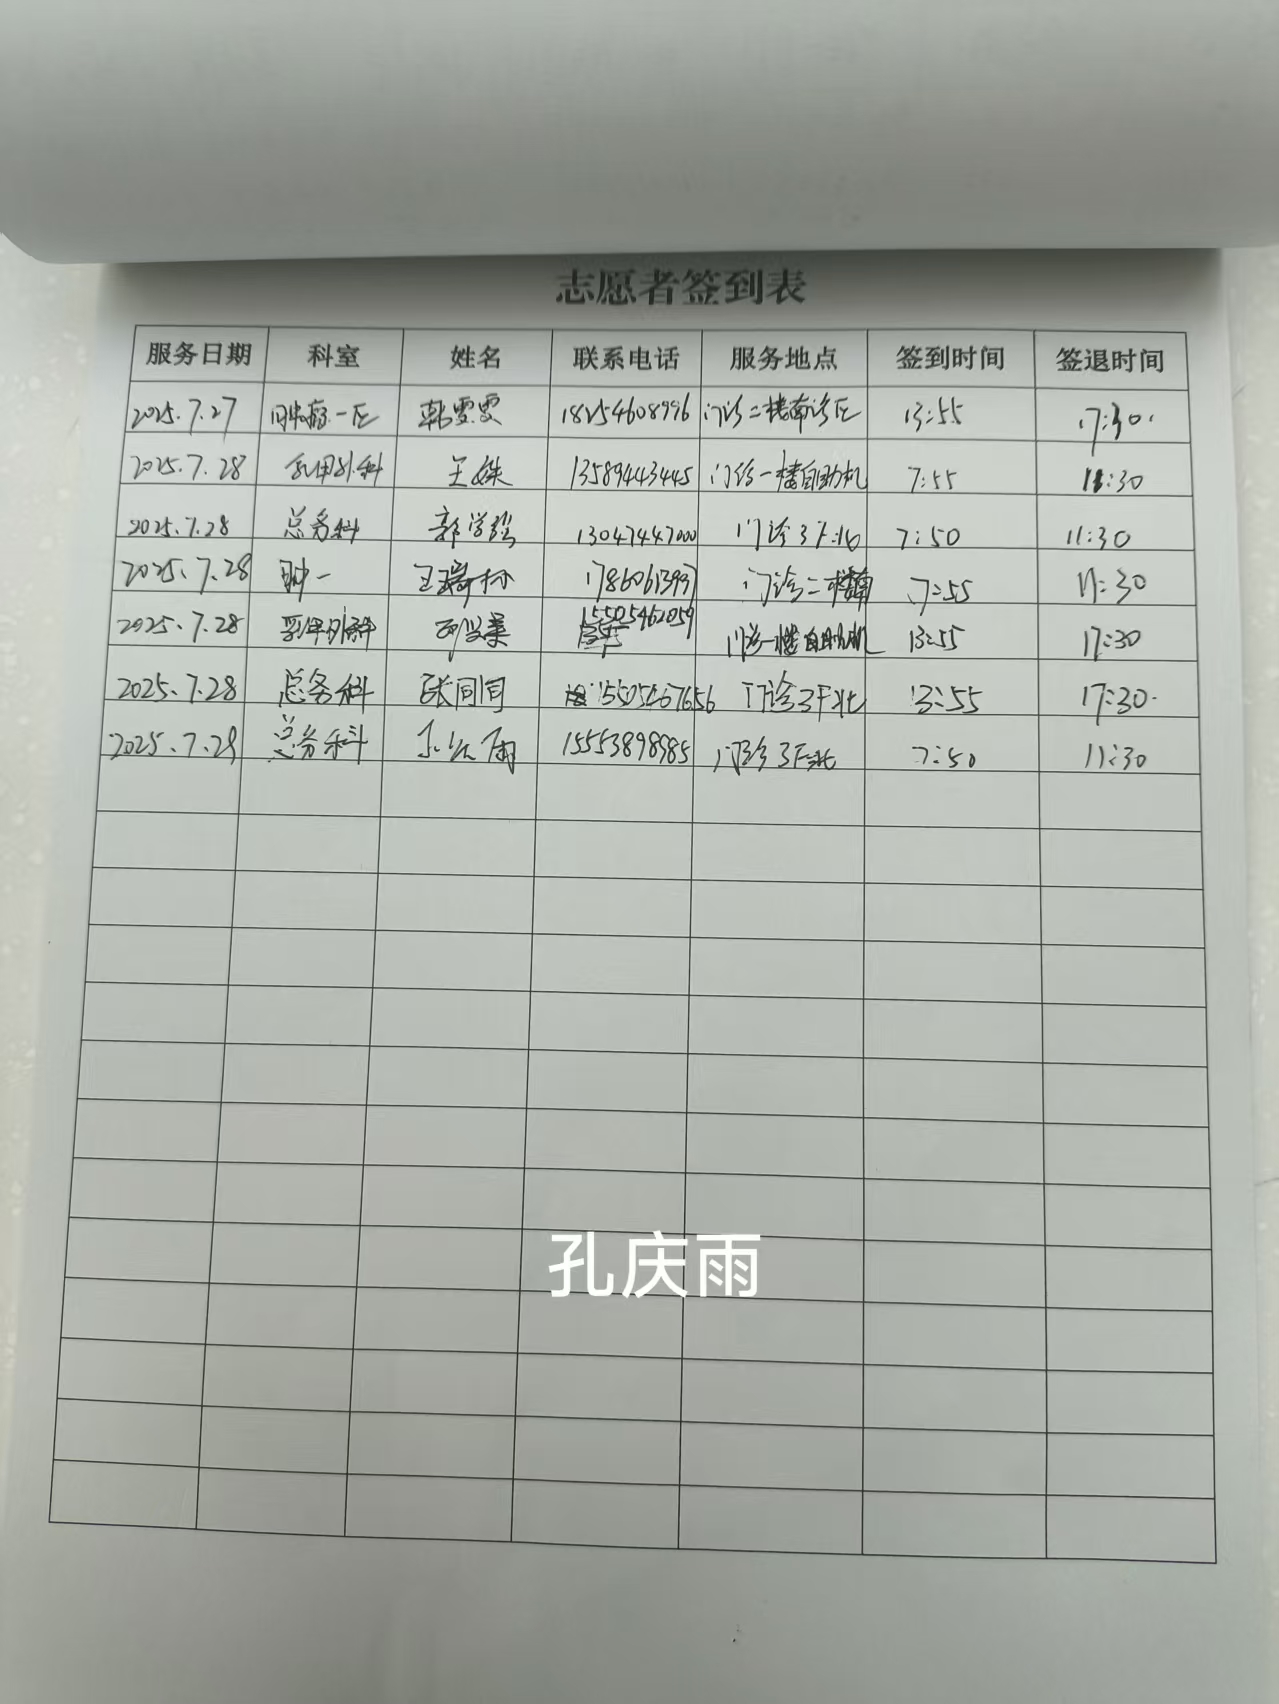 志愿者签到表
服务日期 科室 姓名 联系电话 服务地点 签到时间 签退时间
2025.7.27 肿瘤一区 韩雯雯 18254608996 门诊二楼南诊区 13:55 17:30
2025.7.28 乳甲外科 王姝 13589443445 门诊一楼自助机 7:55 11:30
2025.7.28 总务科 郭学 13047447000 门诊3F北 7:50 11:30
2025.7.28 肿一 王 17860613937 门诊二楼南 7:55 11:30
2025.7.28 乳甲外科 15505462059 门诊一楼自助机 13:55 17:30
2025.7.28 总务科 张同同 15505467656 门诊3F北 13:55 17:30
2025.7.29 总务科 孔庆雨 15553898985 门诊3F北 7:50 11:30
孔庆雨